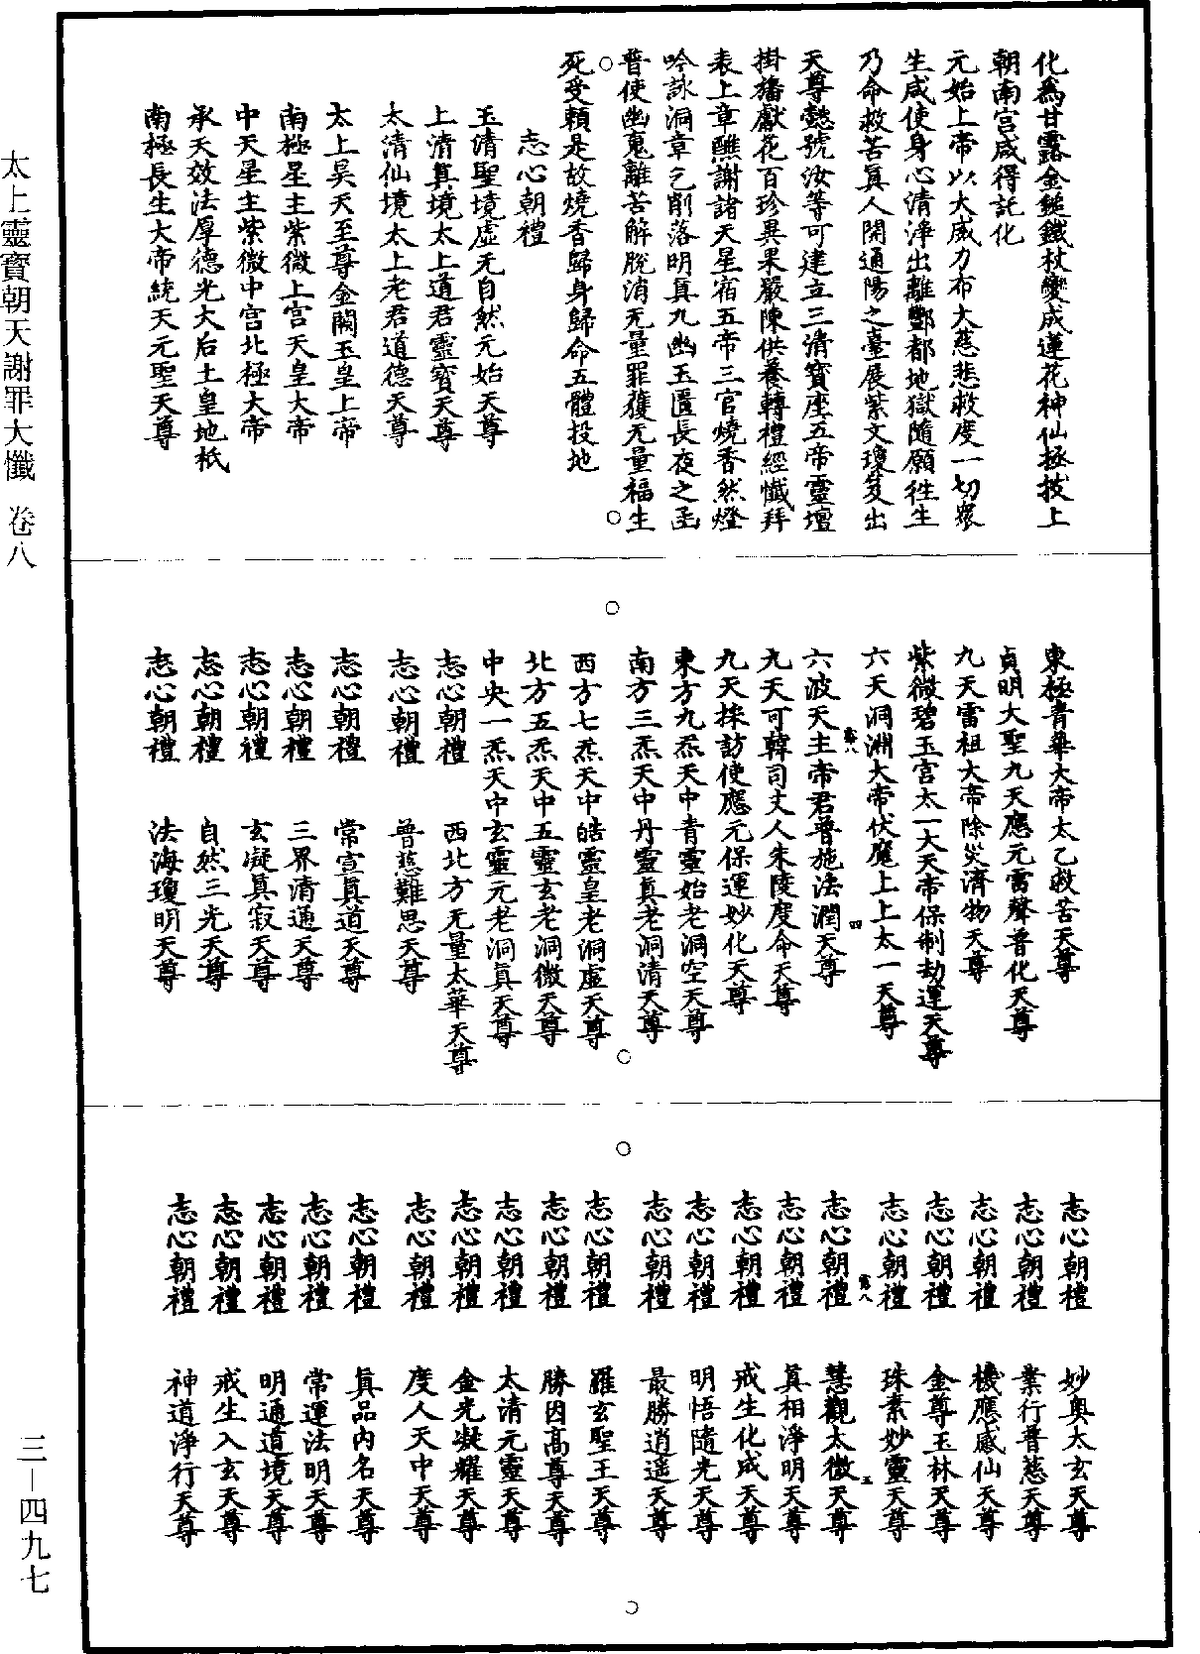 化為甘露金鎚鐵杖變成蓮花神仙極拔上
朝南宮咸得託化
元始上帝以大威力布大慈悲救度一切眾
生咸使身心清淨出離酆都地獄隨願往生
乃命救苦真人開通陽之臺展紫文瓊笈出
天尊懿號汝等可建立三清寶座五帝靈壇
掛旛獻花百珍異果嚴陳供養轉禮經懺拜
表上章醮謝諸天星宿五帝三官燒香然燈
吟詠洞章乞削落明真九幽玉匱長夜之函
普使幽魂離苦解脫消无量罪獲无量福生
死受賴是故燒香歸身歸命五體投地
志心朝禮
玉清聖境虛无自然元始天尊
上清真境太上道君靈寶天尊
太清仙境太上老君道德天尊
太上昊天至尊金闕玉皇上帝
南極星主紫微上宮天皇大帝
中天星主紫微中宮北極大帝
承天效法厚德光大后土皇地祇
南極長生大帝統天元聖天尊
東極青華大帝太乙救苦天尊
貞明大聖九天應元雷聲普化天尊
九天雷祖大帝除災濟物天尊
紫微碧玉宮太一大天帝保制劫運天尊
六天洞淵大帝伏魔上上太一天尊
六波天主帝君普施法潤天尊
九天可韓司丈人朱陵度命天尊
九天採訪使應元保運妙化天尊
東方九炁天中青靈始老洞空天尊
南方三炁天中丹靈真老洞清天尊
西方七炁天中皓靈皇老洞虛天尊
北方五炁天中五靈玄老洞微天尊
中央一炁天中玄靈元老洞真天尊
志心朝禮 西北方无量太華天尊
志心朝禮 普慈難思天尊
志心朝禮 常宣真道天尊
志心朝禮 三界清通天尊
志心朝禮 玄凝真寂天尊
志心朝禮 自然三光天尊
志心朝禮 法海瓊明天尊
志心朝禮 妙奧太玄天尊
志心朝禮 業行普慈天尊
志心朝禮 機應感仙天尊
志心朝禮 金尊玉林天尊
志心朝禮 珠素妙靈天尊
志心朝禮 慧觀太微天尊
志心朝禮 真相淨明天尊
志心朝禮 戒生化成天尊
志心朝禮 明悟隨光天尊
志心朝禮 最勝逍遥天尊
志心朝禮 羅玄聖王天尊
志心朝禮 勝因高尊天尊
志心朝禮 太清元靈天尊
志心朝禮 金光凝耀天尊
志心朝禮 度人天中天尊
志心朝禮 真品內名天尊
志心朝禮 常運法明天尊
志心朝禮 明通道境天尊
志心朝禮 戒生入玄天尊
志心朝禮 神道淨行天尊
太上靈寶朝天謝罪大懺 卷八
三—四九七